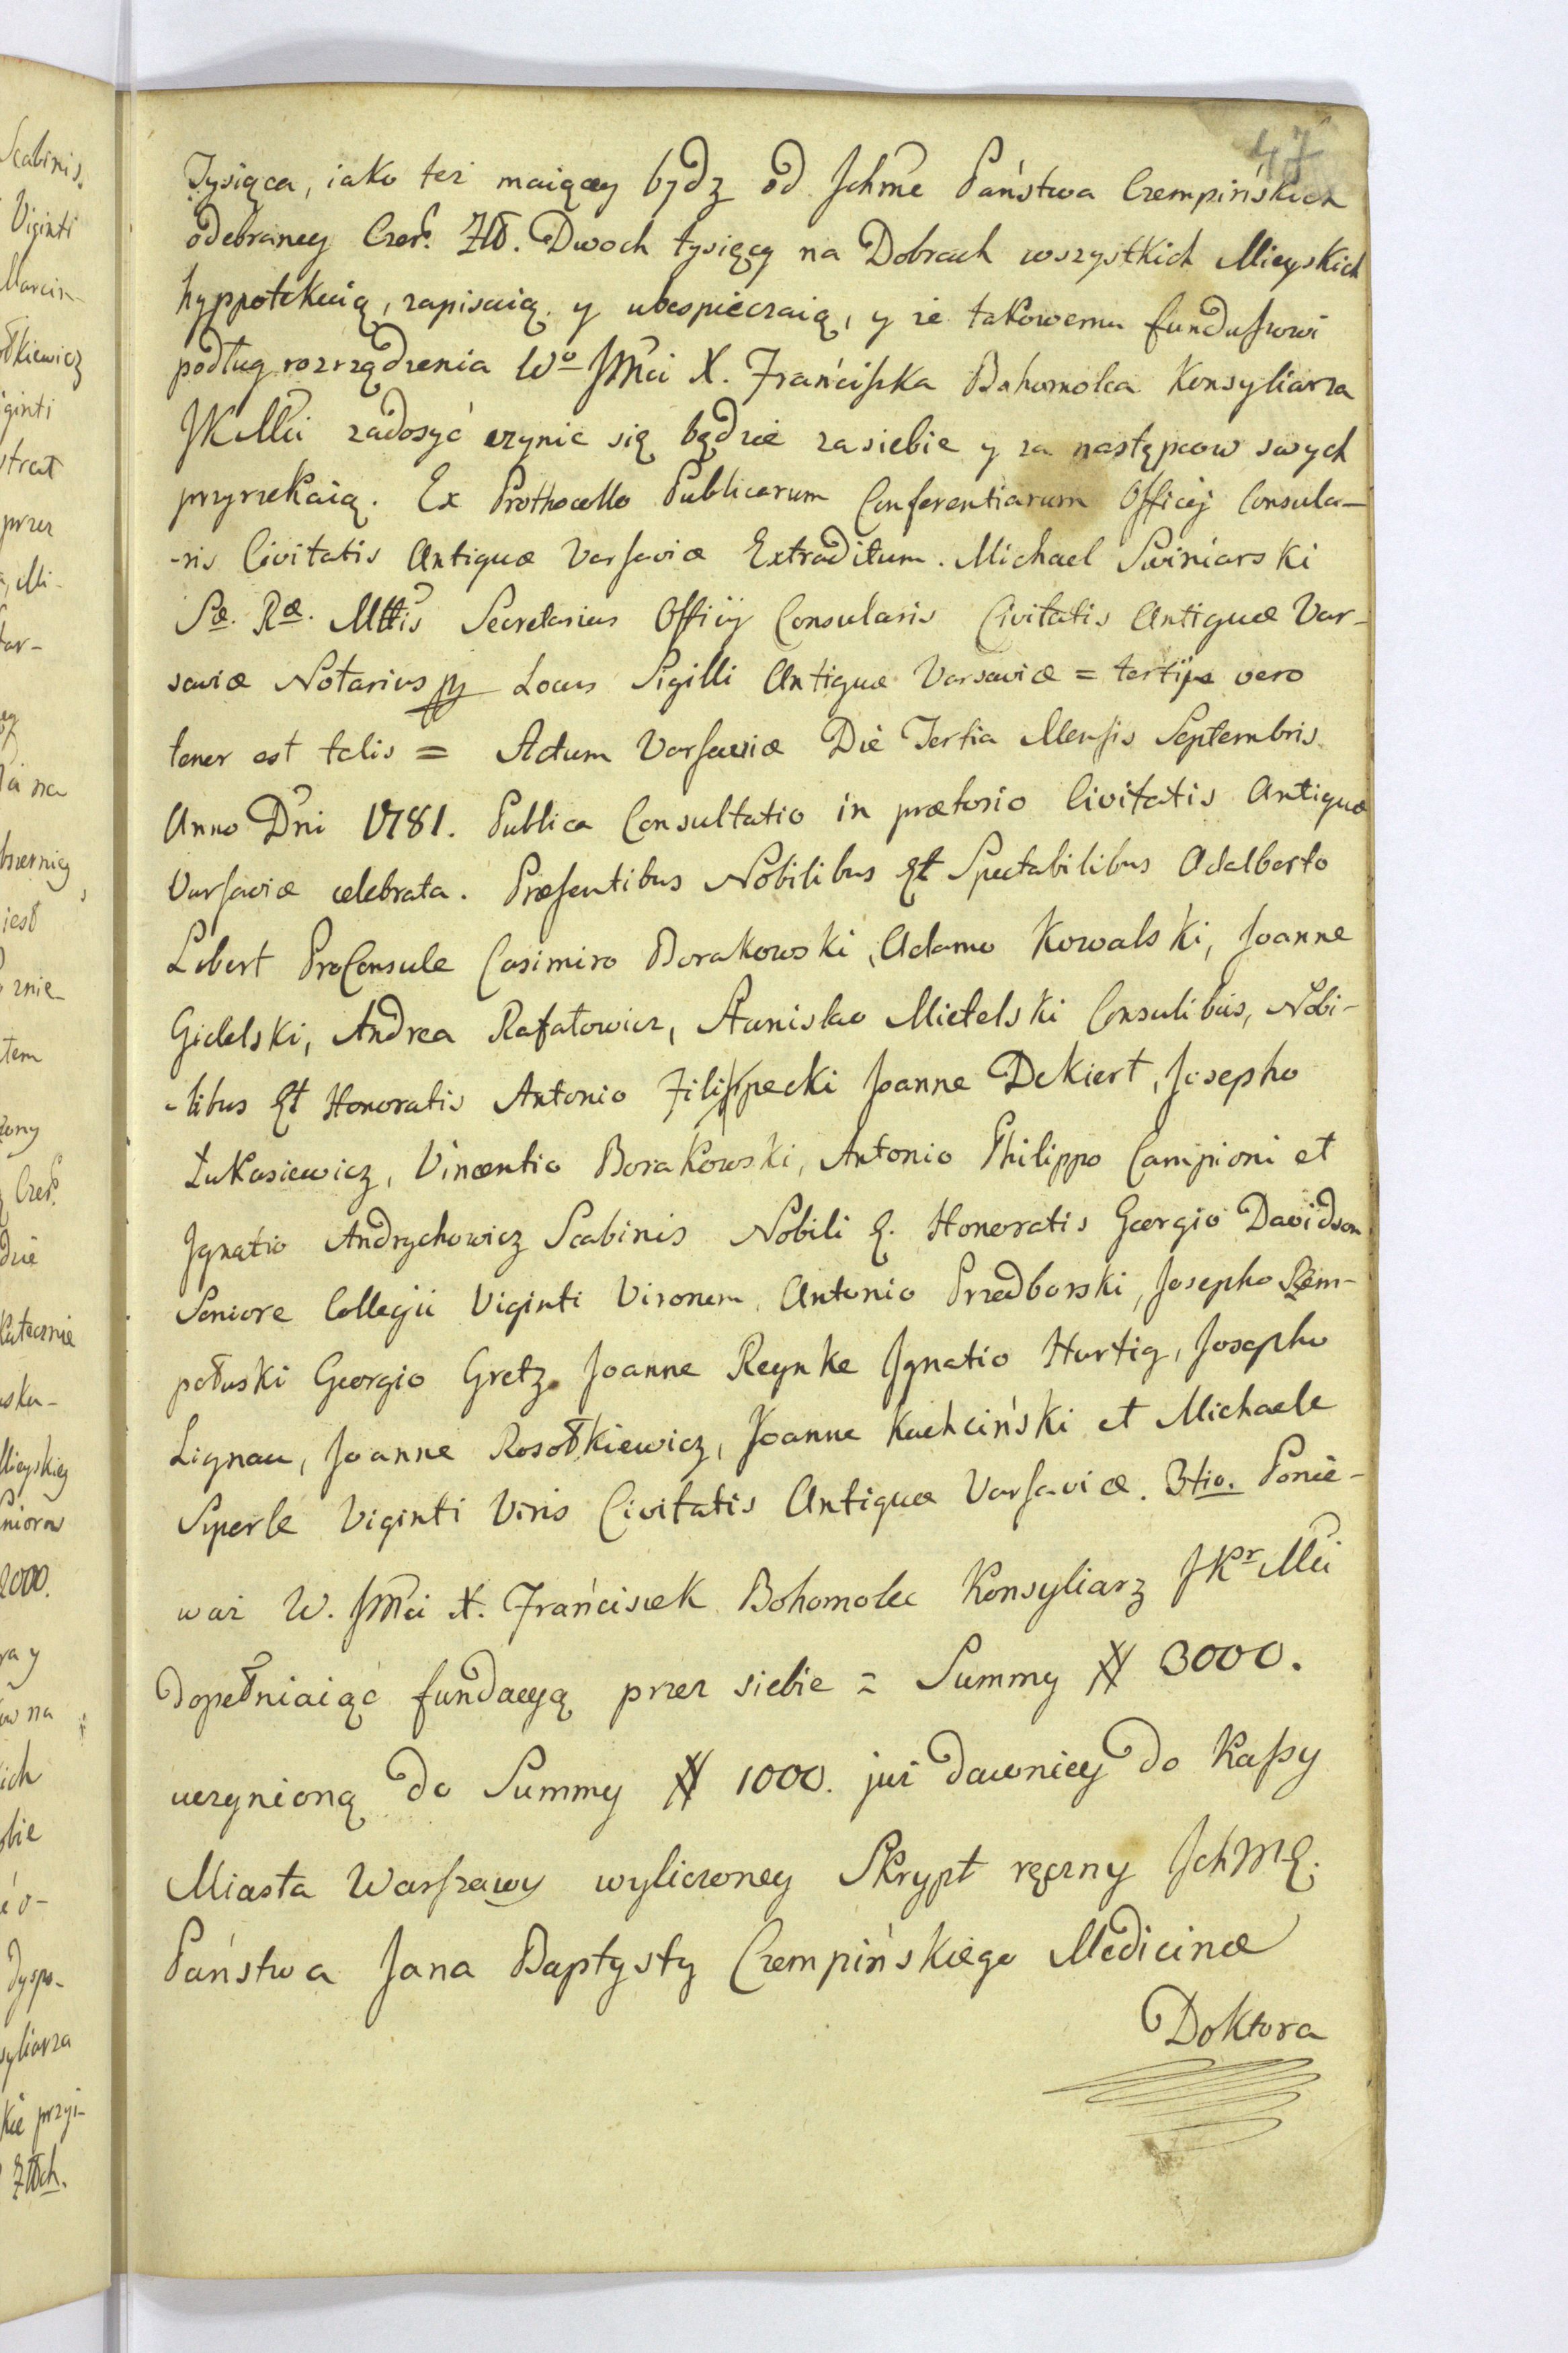 47
Tysiąca, iako też maiącey bydz od Jchmć Państwa Czempińskich
odebraney Czer. Zł. Dwoch tysięcy na Dobrach wszystkich Mieyskich
hyppotekuią, zapisuią y ubespieczaią, y że takowemu funduszowi
podług rozrządzenia Wo JMci X. Franciszka Bohomolca Konsyliarza
JKMci zadosyć czynić się będzie za siebie y za następcow swych
przyrzekaią. Ex Prothocollo Publicarum Conferentiarum Officij Consula-
-ris Civitatis Antiquæ Varsaviæ Extraditum. Michael Swiniarski
Sæ. Ræ. Mttis Secretarius Officij Consularis Civitatis Antiquæ Var-
saviæ Notarius Locus Sigilli Antiquæ Varsaviæ = tertij vero
tenor est talis = Actum Varsaviæ Die Tertia Mensis Septembris
Anno Dni 1781. Publica Consultatio in prætorio Civitatis Antiquæ
Varsaviæ celebrata. Præsentibus Nobilibus Et Spectabilibus Adalberto
Lobert ProConsule Casimiro Borakowski, Adamo Kowalski, Joanne
Gidelski, Andrea Rafałowicz, Stanislao Mietelski Consulibus, Nobi-
-libus Et Honoratis Antonio Filipecki Joanne Dekiert, Josepho
Łukasiewicz, Vincentio Borakowski, Antonio Philippo Campioni et
Jgnatio Andrychowicz Scabinis Nobili E. Honoratis Georgio Davidson
Seniore Collegii Viginti Virorum, Antonio Przedborski, Josepho Rem-
połuski Georgio Gretz Joanne Reynke Jgnatio Hurtig, Josepho
Lignau, Joanne Rosołkiewicz, Joanne Kachciński et Michaele
Syperle Viginti Viris Civitatis Antiquæ Varsaviæ. 3tio. Ponie-
waż W. JMci X. Franciszek Bohomolec Konsyliarz JKr Mci
dopełniaiąc fundacyą przez siebie = Summy # 3000.
uczynioną do Summy # 1000. już dawniey do Kassy
Miasta Warszawy wyliczoney Skrypt ręczny JchMC.
Państwa Jana Baptysty Czempińskiego Medicinæ
Doktora